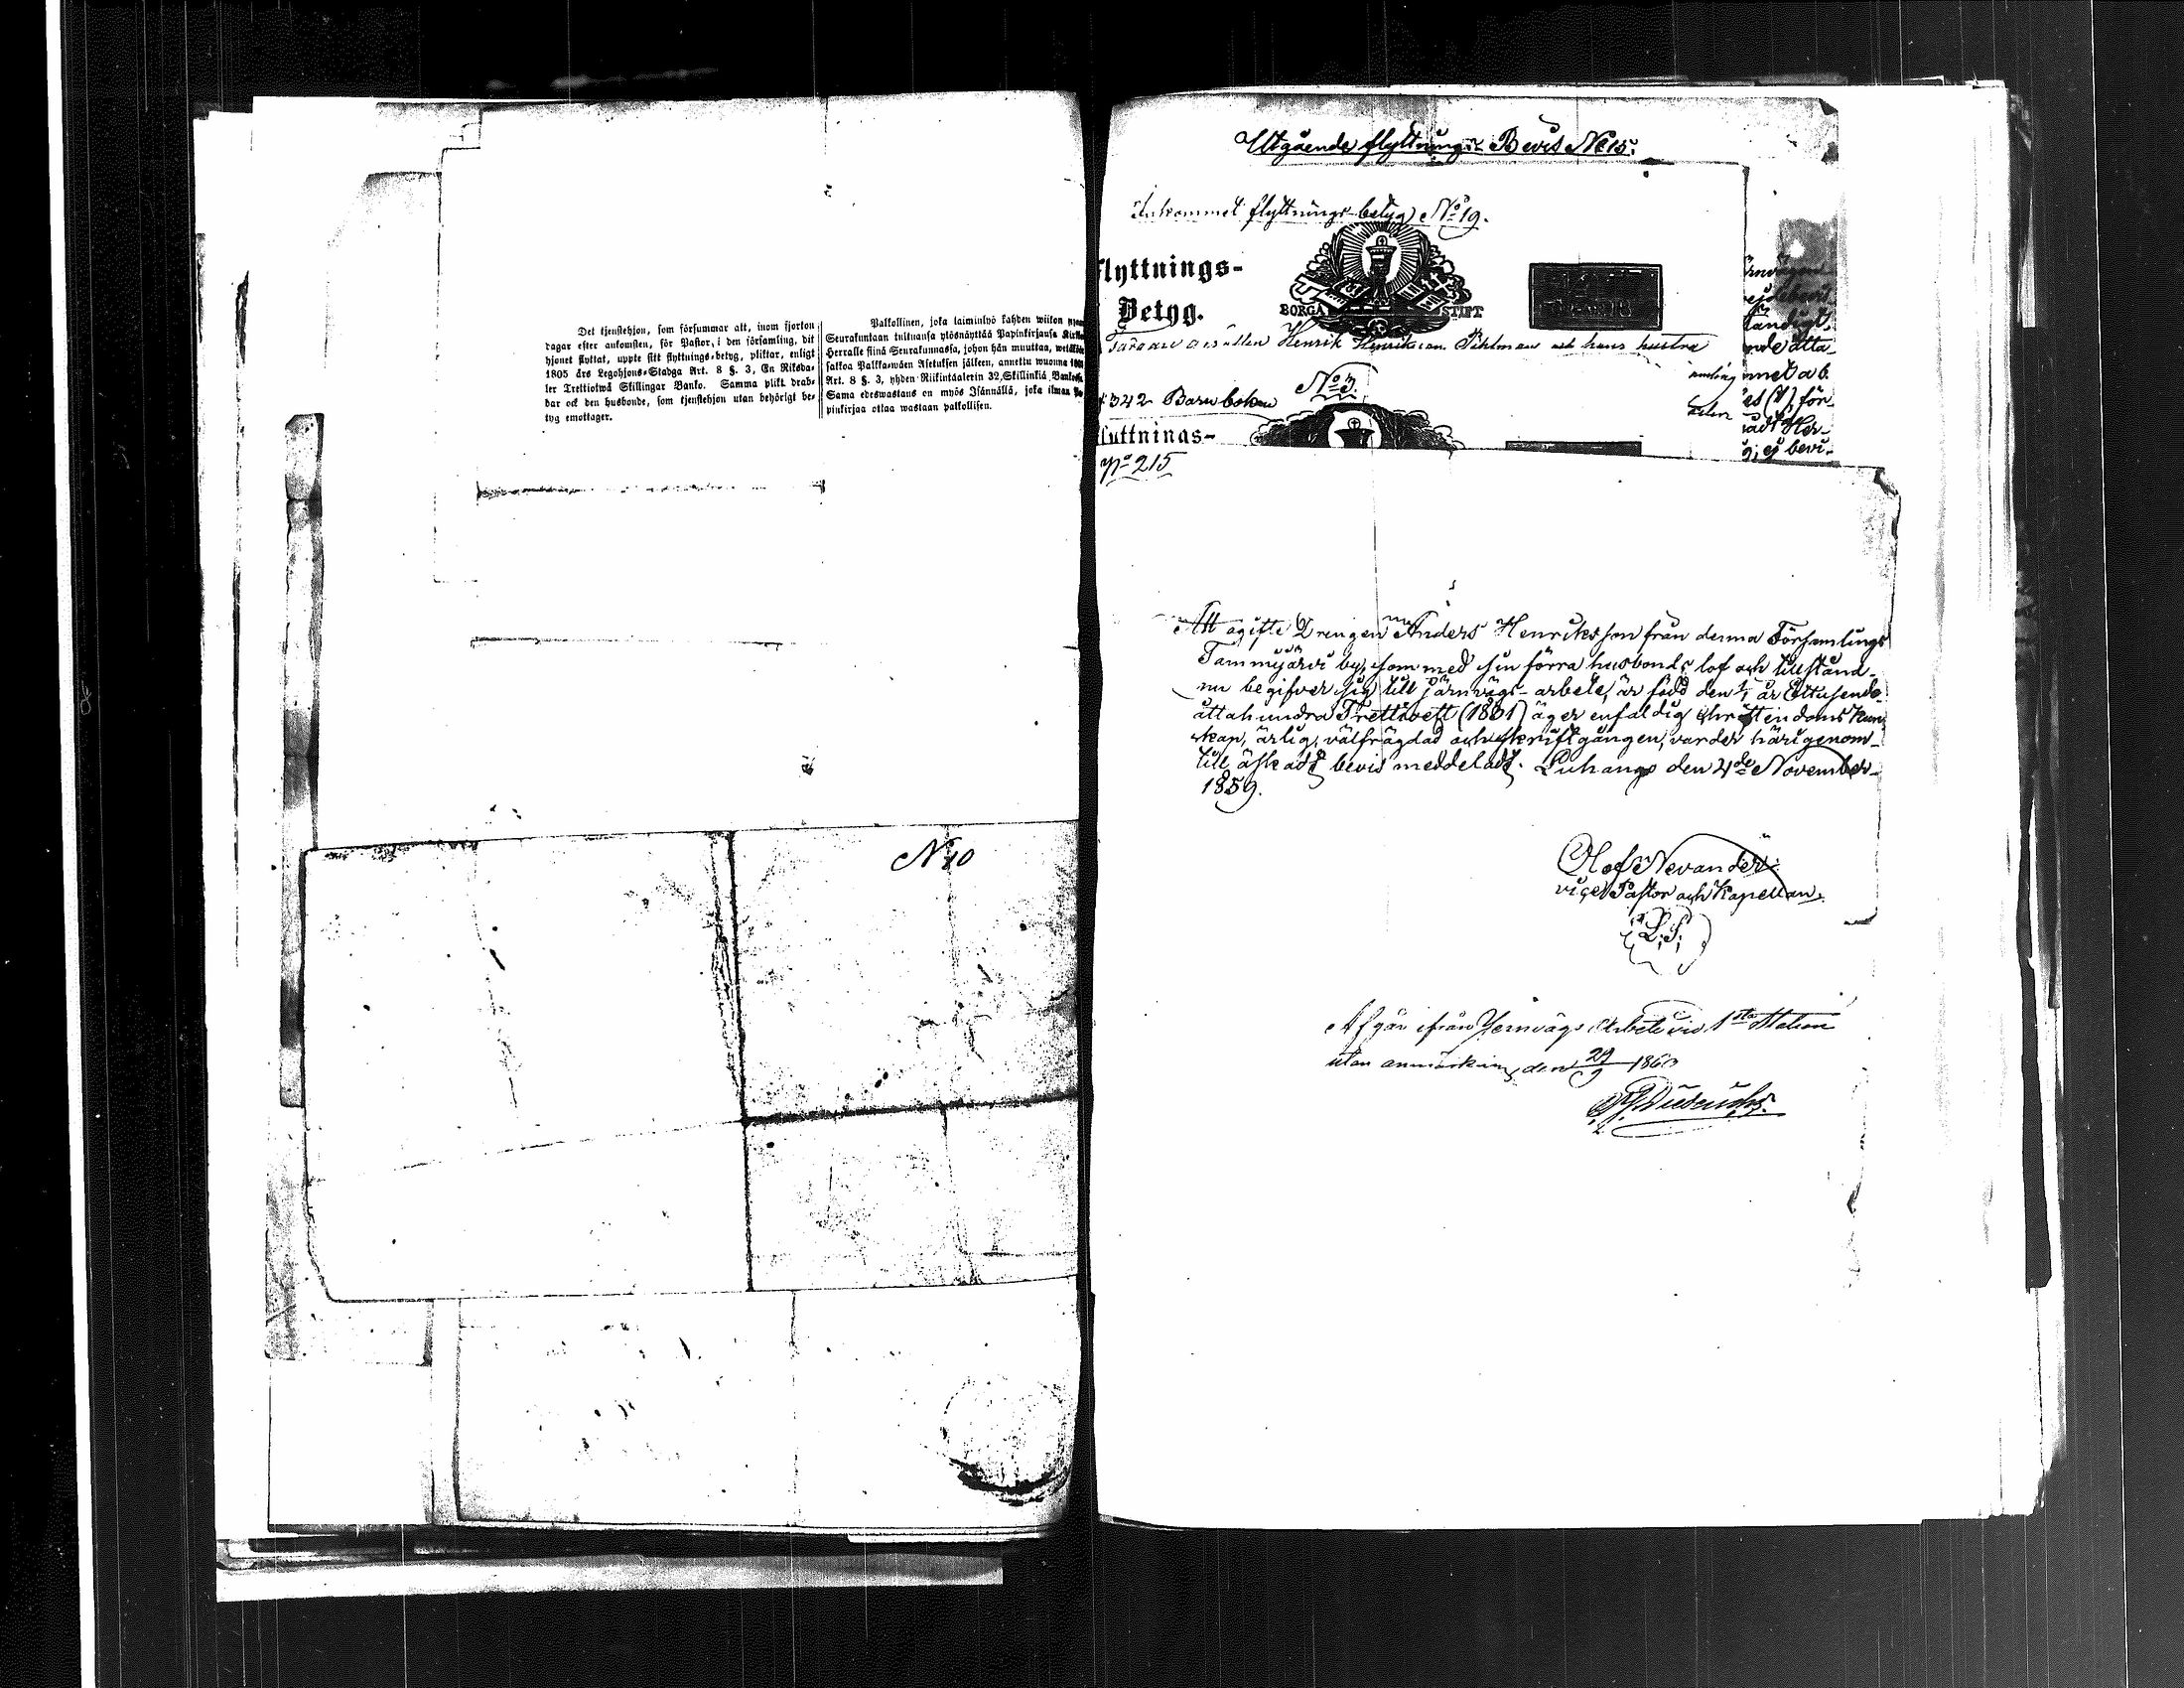 Det tjenstehjon, som försummar att, inom fjorton
dagar efter ankomsten, för Pastor, i den församling, dit
hjonet flyttat, uppte sitt flyttnings-betyg, pliktar, enligt
1805 års Legohjons-Stadga Art. 8 §. 3, En Riksda-
ler Trettiotwå Skillingar Banko. Samma plikt drab-
bar ock den husbonde, som tjenstehjon utan behörigt be-
tyg emottager.
Palkollinen, joka laiminlyö kahden wiikon
Seurakuntaan tultuansa ylösnäyttää Papinkirjansa
Herralle siinä Seurakunnassa, johon hän muuttaa,
sakkoa Palkka-wäen Asetuksen jälkeen, annettu wuonna
Art. 8 §. 3, yhden Riikintaalerin 32 Skillinkiä
Sama edeswastaus on myös Isännällä, joka ilman
pinkirjaa ottaa wastaan palkollisen.
N 10
Utgående flyttnings Bevis No 15.
Inkommet flyttnings-betyg No 19.
Flyttnings-
Betyg.
BORGÅ STIFT
Henrik Henriksson Pihlman och hans hustru
342 Barnboken No 3.
flyttnings-
No 215
Att ogifte Drengen Anders Henriksson från denna Församlings
Tammijärvi by, som med sin förra husbonds lof och tillstånd
nu begifver sig till järnvägs-arbete, är född den 1/1 år Ettusende
åttahundra Trettioett (1831) äger enfaldig christendoms kun-
skap, ärlig, välfrägdad och skriftgången, varder härigenom
till äskadt bevis meddeladt. Luhango den 4de November
1859.
Olof Nevander
vice Pastor och Kapellan.
L.S.
Afgår ifrån Jernvägs Arbete vid 1sta Station
utan anmärkning den 29/9 1860